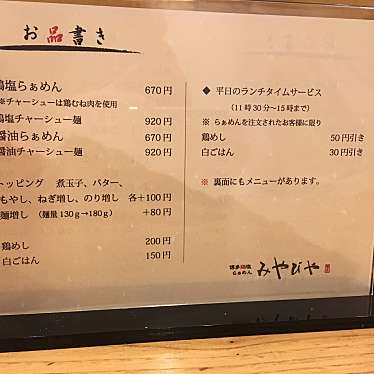 お品書き
鶏塩らぁめん 670円
※チャーシューは鶏むね肉を使用
鶏塩チャーシュー麺 920円
醤油らぁめん 670円
醤油チャーシュー麺 920円
トッピング 煮玉子、バター、
もやし、ねぎ増し、のり増し 各+100円
麺増し (麺量130g→180g) +80円
鶏めし 200円
白ごはん 150円
◆ 平日のランチタイムサービス
(11時30分~15時まで)
※ らぁめんを注文されたお客様に限り
鶏めし 50円引き
白ごはん 30円引き
※ 裏面にもメニューがあります。
博多鶏塩
らぁめん
みやびや